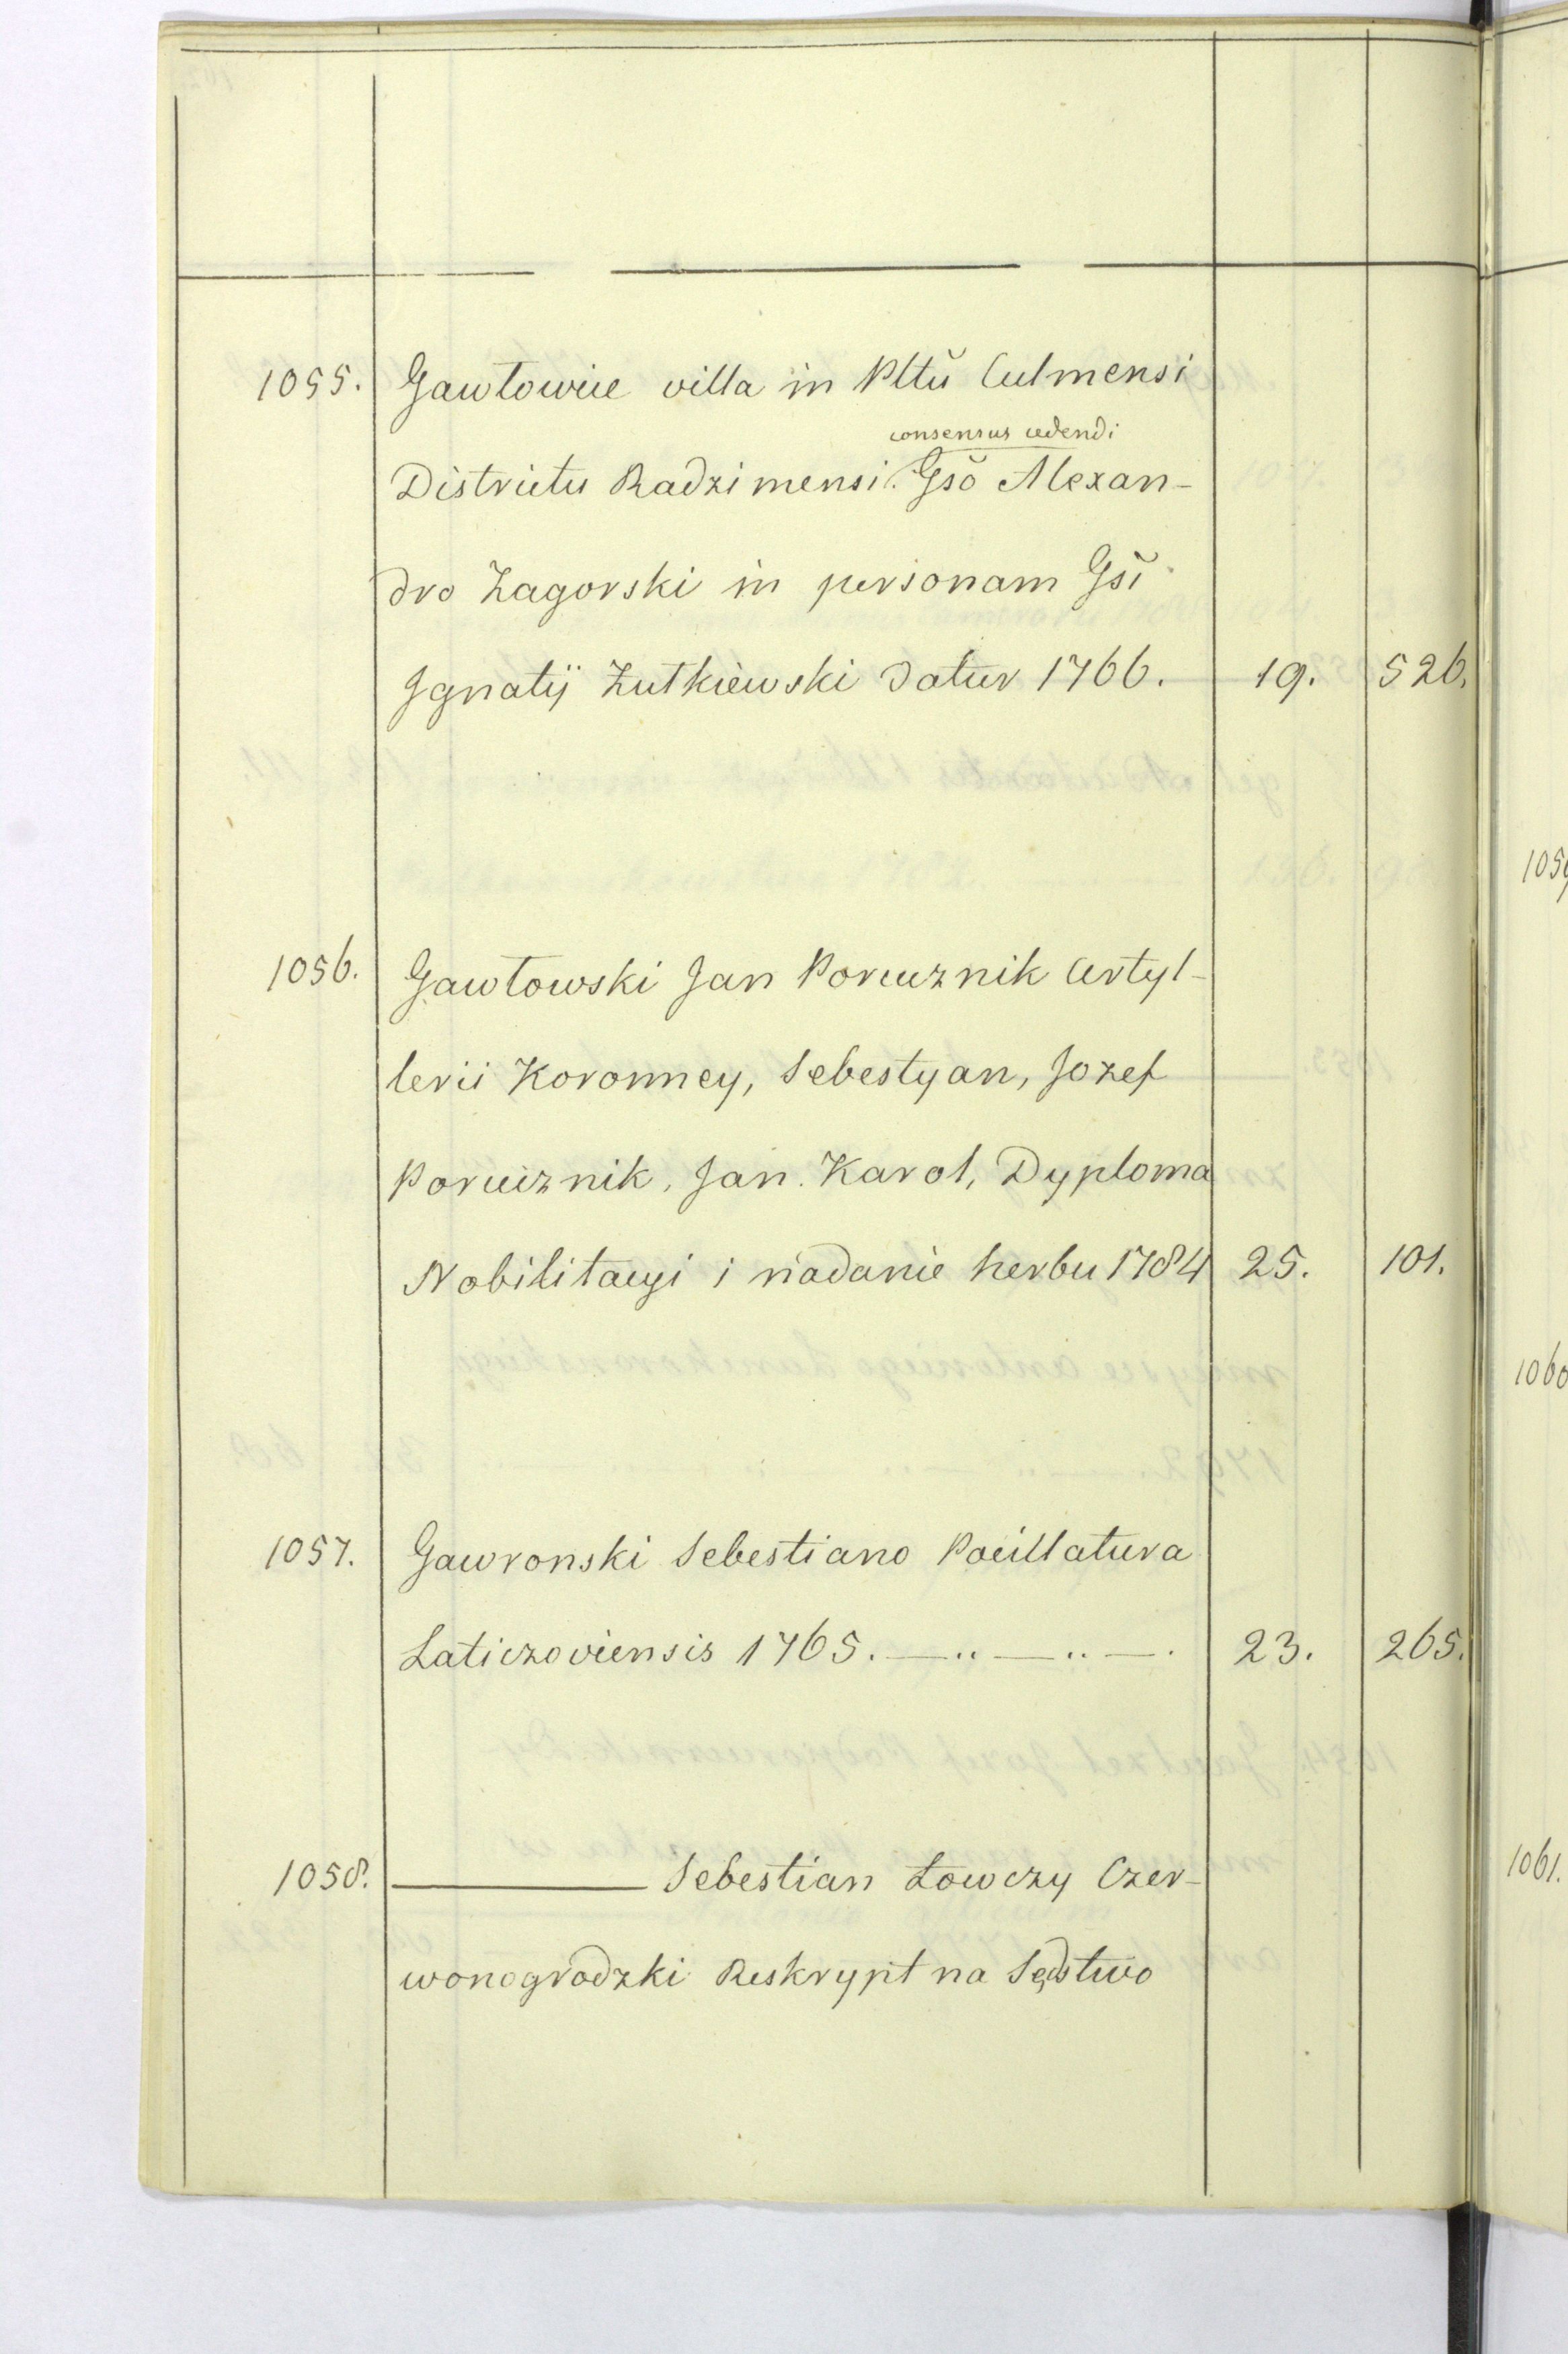 1055. Gawłowice villa in Pltũ Culmensi
consensus cedendi
Districtu Radzimensi. Gsõ Alexan-
dro Zagorski in personam Gsĩ
Ignatij Zutkiewski datur 1766. 19. 526.
1056. Gawłowski Jan Porucznik Artyl-
lerii Koronney, Sebestyan, Jozef
Porucznik, Jan. Karol, Dyploma
Nobilitacyi i nadanie herbu 1784 25. 101.
1057. Gawronski Sebestiano Pocillatura
Laticzoviensis 1765. — .. — .. — . 23. 265.
1058. ——— Sebestian Łowczy Czer-
wonogrodzki Reskrypt na Sędstwo
1059
1060
1061.